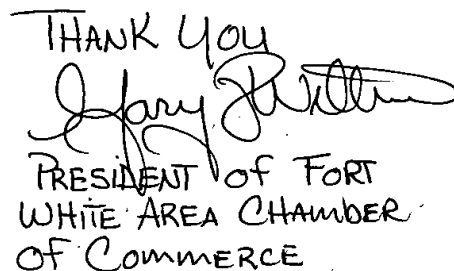 THANK YOU
Gary
PRESIDENT of FORT
WHITE AREA CHAMBER
of COMMERCE